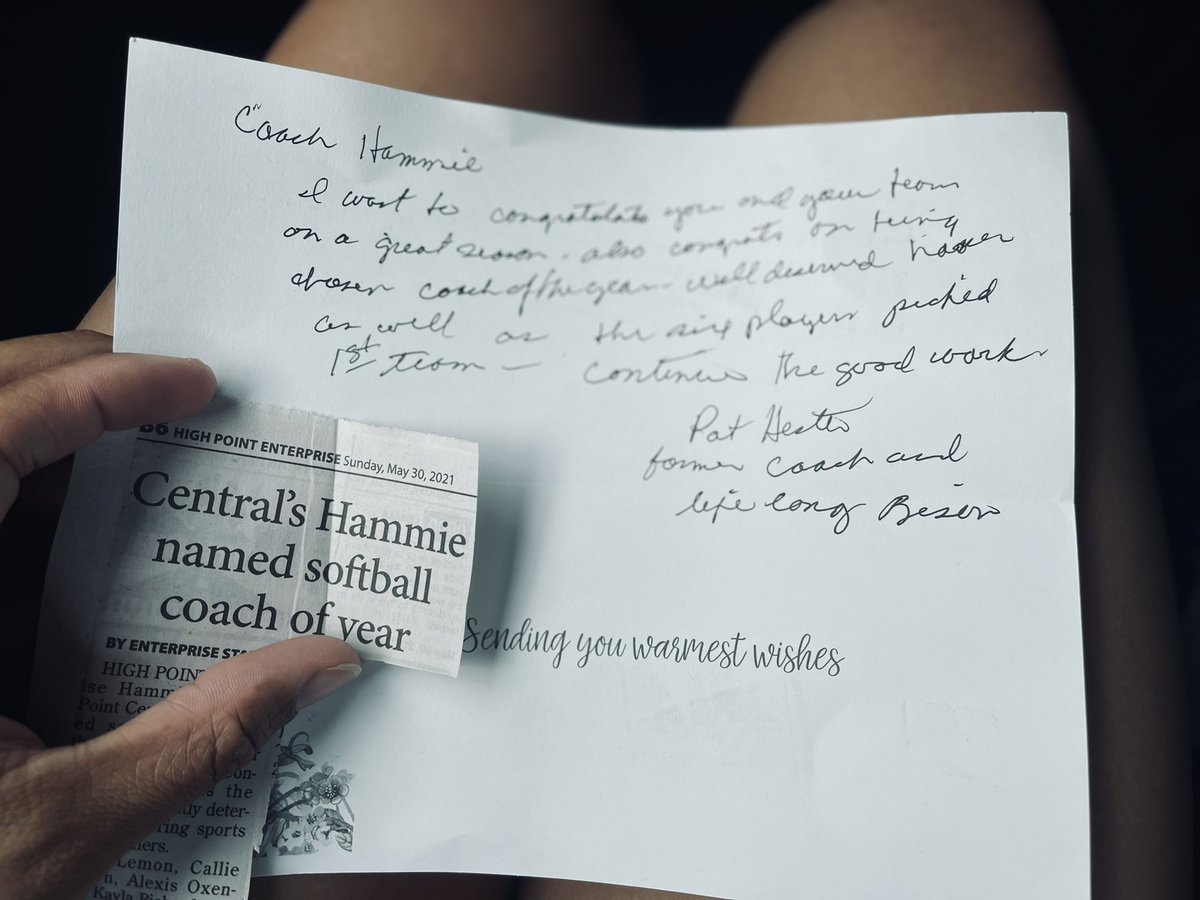 Coach Hammie
I want to congratulate you and your team
on a great season. also congrats on being
chosen coach of the year - well deserved honor
as well as the six players picked
1st team - continue the good work
Pat Hester
former coach and
life long Bison
B6 HIGH POINT ENTERPRISE Sunday, May 30, 2021
Central's Hammie
named softball
coach of year
BY ENTERPRISE STA
HIGH POIN
ise Hamm
Point Ce
ed s
on-
s the
dy deter-
ring sports
ners.
Lemon, Callie
n, Alexis Oxen-
Kayla
Sending you warmest wishes